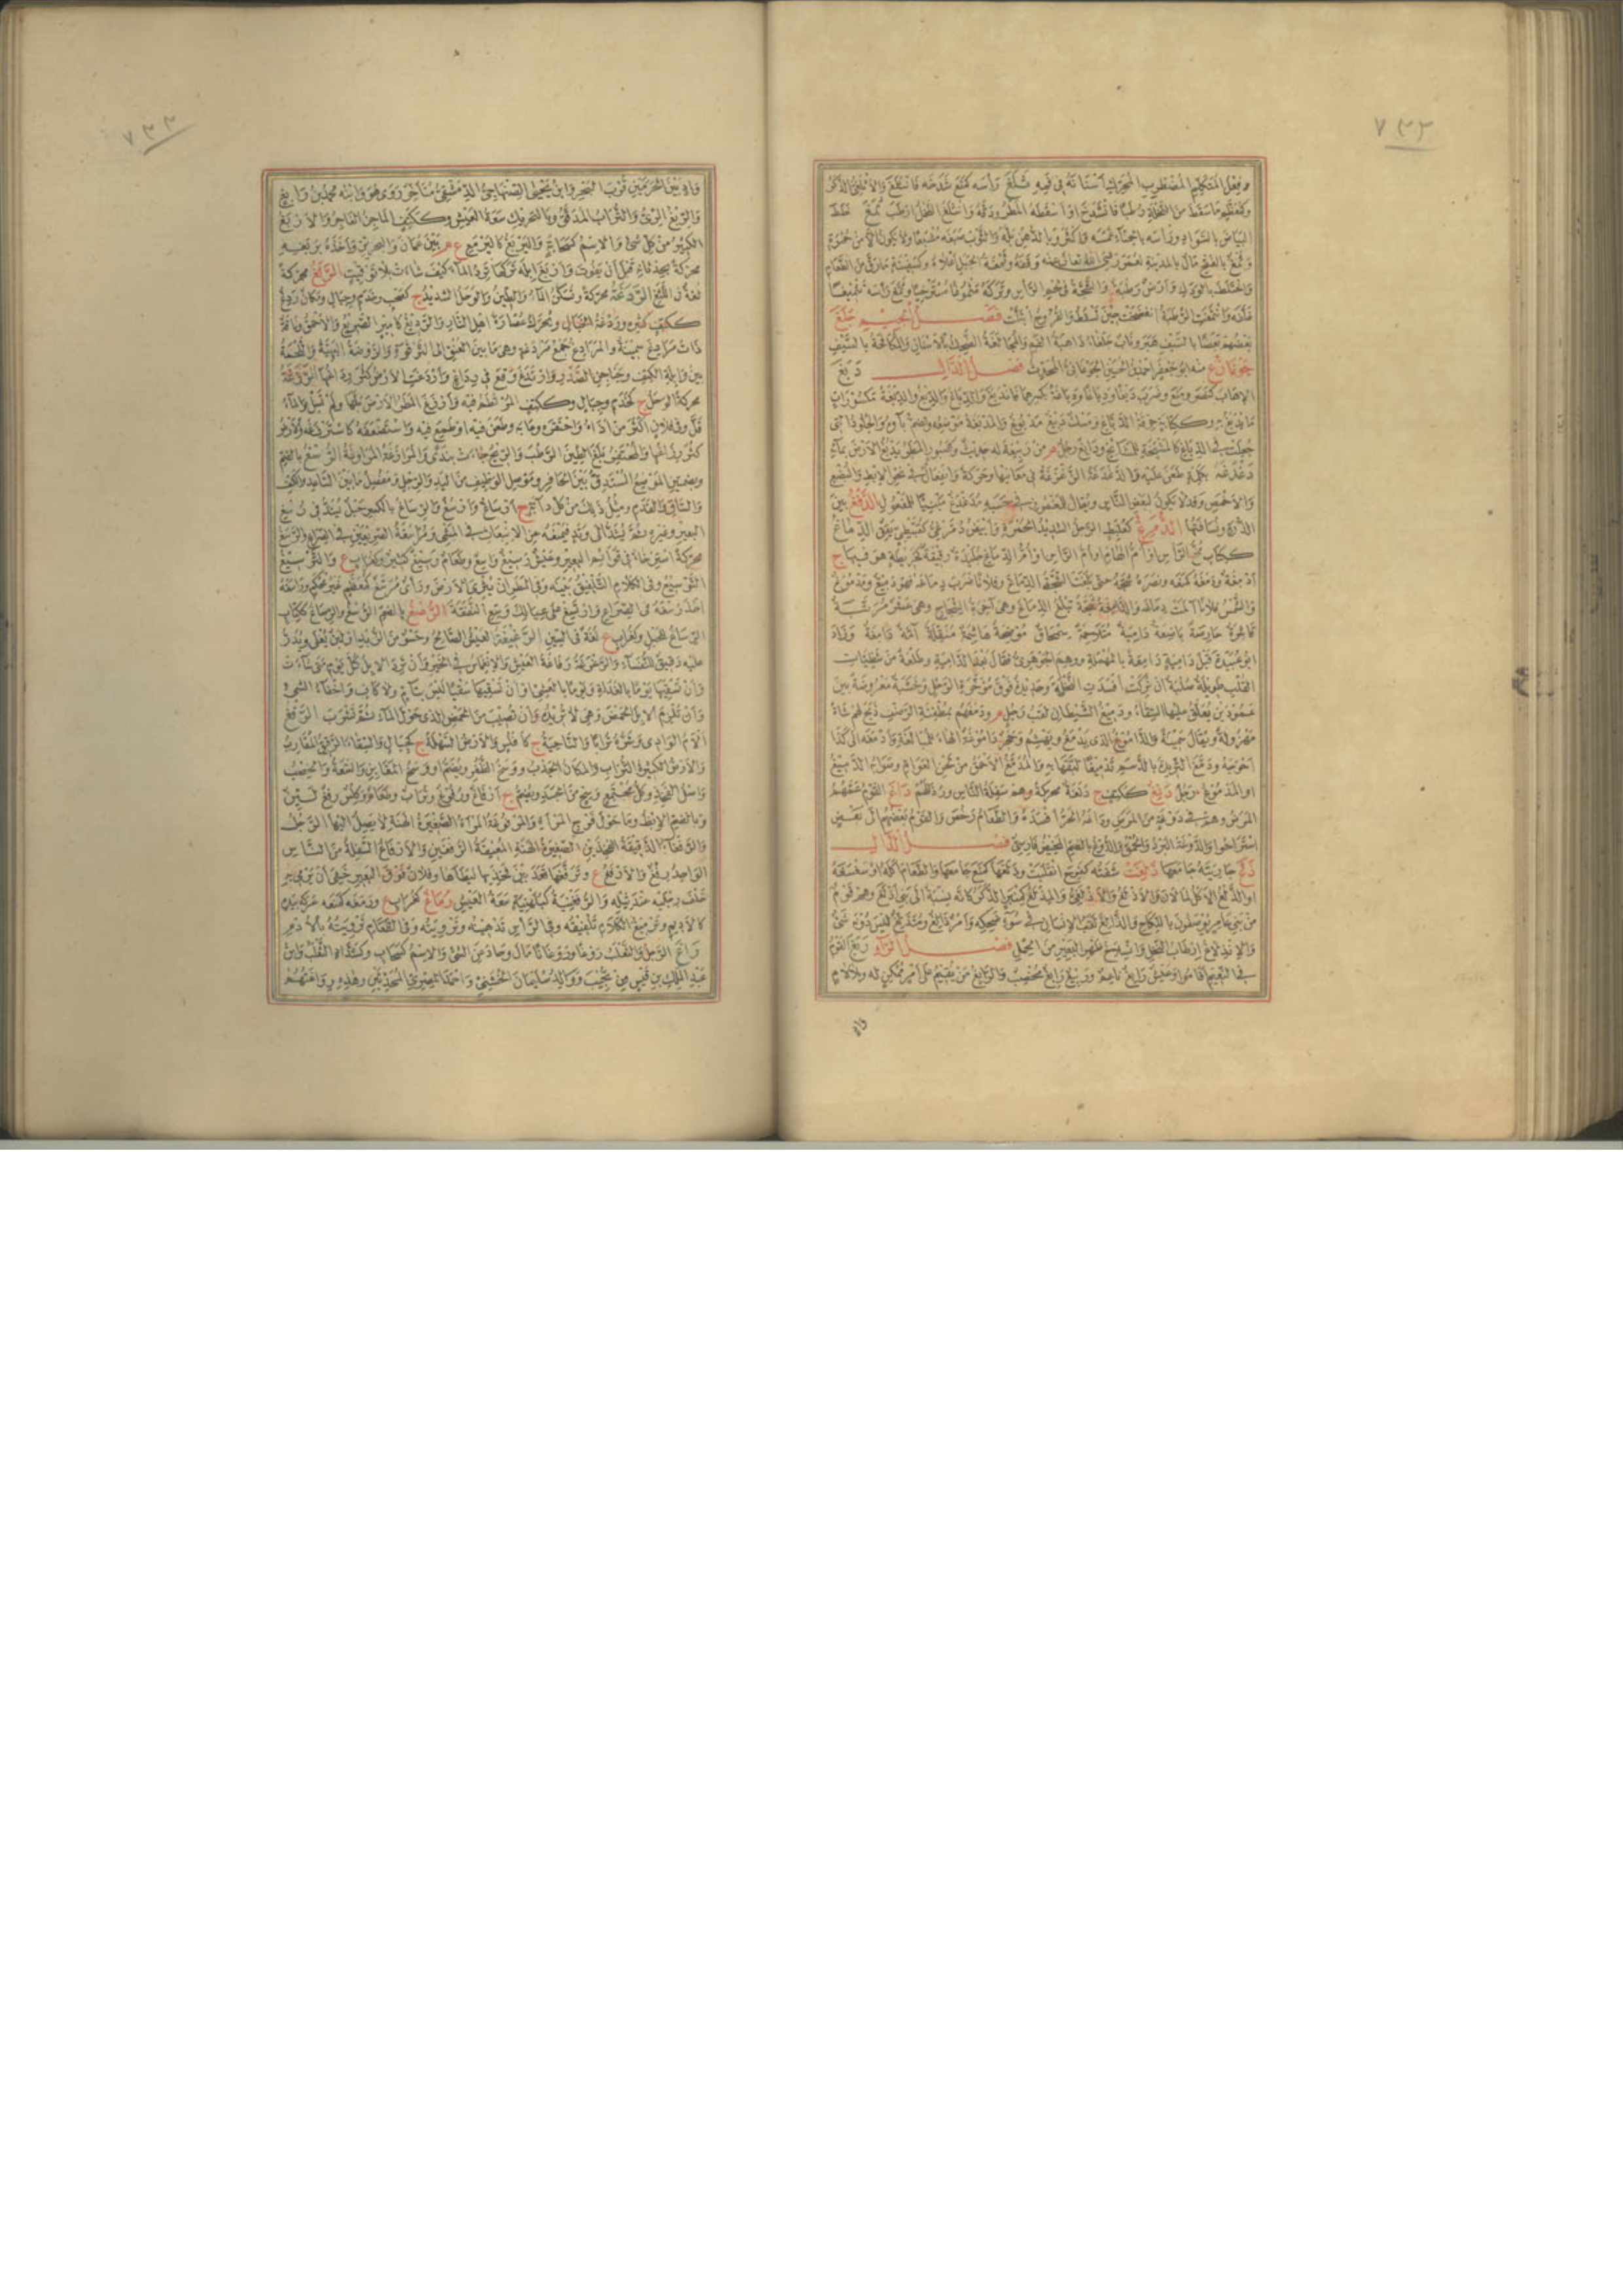 ٧٣٢
البياض بالسواد ورأسه بالحناء غمسه واكثر وبالدهن بله والثوب صبغه مشبعا ولا يكون الا من حمرة
فصل الجيم جلغ
بعضهم بعضا بالسيف هبر وناب جلغاء ذاهبة الفم والمجالغة الضحك بالاسنان والمكافحة بالسيف
جوغان ع منه ابو جعفر احمد بن الحسين الجوغاني المحدث فصل الدال دبغ
الاهاب كنصر ومنع وضرب دبغا ودباغا ودباغة بكسرهما فاندبغ والدباغ والدبغ والدبغة مكسورات
ما يدبغ به وككتابة حرفة الدباغ ومسك دبيغ مدبوغ والمدبغة موضعه وتضم باؤه والجلود التي
جعلت في الدباغ كالمشيخة للمشايخ ودابغ رجل م من ربيعة له حديث وكصبور المطر يدبغ الارض بمائه
دغدغه بكلمة طعن عليه والدغدغة الزغزغة في معانيها وحركة وانفعال في نحو الابط والبضع
والاخمص وقد لا يكون لبعض الناس ويقال للمغموز في حسبه مدغدغ مبنيا للمفعول الدفغ تبن
الذرة ونسافتها الدمرغ كعلبط الرجل الشديد الحمرة وابيض دمرغي كقبيطي يقق الدماغ
ككتاب مخ الراس او ام الهام او ام الراس او ام الدماغ جليدة رقيقة كخريطة هو فيها ج
ادمغة ودمغه كمنعه ونصره شجه حتى بلغت الشجة الدماغ وفلانا ضرب دماغه فهو دميغ ومدموغ
والشمس فلانا آلمت دماغه والدامغة شجة تبلغ الدماغ وهي آخرة الشجاج وهي عشر مرتبة
قاشرة حارصة باضعة دامية متلاحمة سمحاق موضحة هاشمة منقلة آمة دامغة وزاد
ابو عبيدة قبل دامية دامعة بالمهملة ووهم الجوهري فقال بعد الدامية وطلعة من شظيات
القلب طويلة صلبة ان تركت افسدت النخلة وحديدة فوق مؤخرة الرحل وخشبة معروضة بين
عمودين يعلق عليها السقاء ودميغ الشيطان لقب رجل م ودمغهم بمطفئة الرضف ذبح لهم شاة
مهزولة ويقال سمينة والداموغ الذي يدمغ ويهشم وحجر داموغة الهاء للمبالغة وادمغه الى كذا
احوجه ودمغ الثريد بالدسم تدميغا لبقها به والمدمغ الاحمق من لحن العوام وصوابه الدميغ
او المدموغ رجل دنغ ككتف ج دنغة محركة وهم سفلة الناس ورذالهم داغ القوم عمهم
المرض وهم في دوغة من المرض وداغه الحر افسده والطعام رخص والقوم بعضهم الى بعض
استراحوا والدوغة البرد والحمق والدوغ بالضم المخيض فارسي فصل الذال
ذغ جاريته جامعها ذلغت شفته كفرح انقلبت وذلغها كمنع جامعها والطعام اكله
من بني عامر يوصلون بالنكاح والذالغ لقب الانسان في سوء ضحكه وامر ذالغ ومتذلغ ليس دونه شيء
والانذلاغ ارطاب النخل وانسلاخ ظهر البعير من الحمل فصل الراء ربغ القوم
في النعيم اقاموا وعيش رابغ ناعم وربيع رابغ مخصب والرابغ من يقيم على امر ممكن له وبلا لام
واد
٧٣٣
واد بين الحرمين قرب البحر وابن يحيى الصنهاجي الدمشقي متاخر روى هو وابنه محمد بن رابغ
والربغ الري والتراب المدقق وبالتحريك سعة العيش وككتف الماجن الفاجر والاربغ
الكثير من كل شيء والاسم كسحابة واليربغ كاليرمع ع م بين عمان والبحرين واخذه بربغه
محركة بحدثانه قبل ان يفوت واربغ ابله تركها ترد الماء كيف شاءت بلا توقيت الرثغ محركة
لغة في اللثغ الردغة محركة وتسكن الماء والطين والوحل الشديد ج كصحب وخدم وجبال ومكان ردغ
ككتف كثيره وردغة الخبال ويحرك عصارة اهل النار والرديغ كامير الصريع والاحمق وناقة
ذات مرادغ سمينة والمرادغ جمع مردغة وهي ما بين العنق الى الترقوة والروضة البهية واللحمة
بين وابلة الكتف وجناجن الصدر وارتدغ وقع في رداغ واردغت الارض كثر رداغها الرزغة
محركة الوحل ج كخدم وجبال وككتف المرتطم فيه وارزغ المطر الارض بلها ولم تسل والماء
قل وفي فلان اكثر من اذاه واحتقره وعابه وطعن فيه او طمع فيه واستضعفه كاسترزغه والارض
كثر رزاغها والمحتفر بلغ الطين الرطب والريح جاءت بندى والمرازغة المراوغة الرسغ بالضم
وبضمتين الموضع المستدق بين الحافر وموصل الوظيف من اليد والرجل ومفصل ما بين الساعد والكف
والساق والقدم ومثل ذلك من كل دابة ج ارساغ وارسغ والرساغ بالكسر حبل يشد في رسغ
البعير وغيره ثم يشد الى وتد فيمنعه من الانبعاث في المشي ومراسغة الصريعين في الصراع والرسغ
محركة استرخاء في قوائم البعير وعيش رسيغ واسع وطعام رسيغ كثير وكغراب ع والترسيغ
التوسيع وفي الكلام التلفيق بينه وفي المطر ان يثري الارض ورأي مرسغ كمعظم غير محكم وراسغه
اخذ رسغه في الصراع وارتسغ على عيالك وسع النفقة الرصغ بالضم الرسغ والرصاغ ككتاب
عليه دقيق للنفساء والرغرغة رفاغة العيش والانغماس في الخير وان ترد الابل كل يوم متى شاءت
وان تسقيها يوما بالغداة ويوما بالعشي او ان تسقيها سقيا ليس بتام ولا كاف واخفاء الشيء
وان تلزم الابل الحمض وهي لا تريده وان تصيب من الحمض الذي حول الماء ثم تشرب الرفغ
الأم الوادي وشره ترابا والناحية ج كافلس والارض السهلة ج كجبال والسقاء الرقيق المقارب
والارض الكثيرة التراب والمكان الجدب ووسخ الظفر ويضم او وسخ المغابن والسعة والخصب
واصل الفخذ وكل مجتمع وسخ من الجسد ويضم ج ارفاغ ورفوغ وتراب وطعام وكلس رفغ لين
وبالضم الابط وما حول فرج المرأة والمرفوغة المرأة الصغيرة الهنة لا يصل اليها الرجل
والرفغاء الدقيقة الفخذين الصغيرة الهنة المعيقة الرفغين والارفاغ السفلة من الناس
الواحد رفغ والارفغ ع وترفغها قعد بين فخذيها ليطأها وفلان فوق البعير خشي ان يرمي به
فلف رجليه عند ثيله والرفغنية كبلهنية سعة العيش رماغ كغراب ع ورمغه كمنعه عركه بيده
كالاديم وترميغ الكلام تلفيقه وفي الراس تدهينه وترويته وفي الطعام ترويته بالادم
راغ الرجل والثعلب روغا وروغانا مال وحاد عن الشيء والاسم كسحاب وكشداد الثعلب وابن
عبد الملك بن قيس من تجيب ووالد سليمان الخشني واحمد المصري المحدثين وهذه رواغتهم